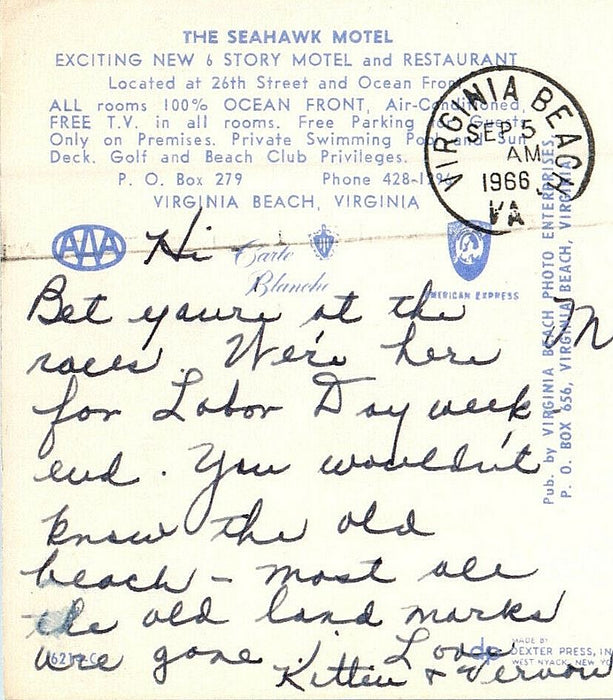 THE SEAHAWK MOTEL
EXCITING NEW 6 STORY MOTEL and RESTAURANT
Located at 26th Street and Ocean Front
ALL rooms 100% OCEAN FRONT, Air-Conditioned,
FREE T.V. in all rooms. Free Parking Guests
Only on Premises. Private Swimming Pool and Sun
Deck. Golf and Beach Club Privileges.
P. O. Box 279 Phone 428-
VIRGINIA BEACH, VIRGINIA
VIRGINIA BEACH
SEP 5
AM
1966
VA
AAA
Carte
Blanche
AMERICAN EXPRESS
Hi -
Bet you're at the
races. We're here
for Labor Day week
end. You wouldn't
know the old
beach - most all
the old land marks
are gone! Love
Kittie & Vernon
M
Pub. by VIRGINIA BEACH PHOTO ENTERPRISES,
P. O. BOX 656, VIRGINIA BEACH, VIRGINIA
dp
MADE BY
DEXTER PRESS, IN
WEST NYACK, NEW YO